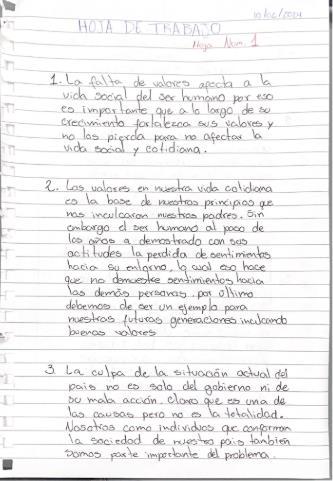 10/02/2024
HOJA DE TRABAJO
Hoja Num. 1
1. La falta de valores afecta a la
vida social del ser humano por eso
es importante que a lo largo de su
crecimiento fortalezca sus valores y
no los pierda para no afectar la
vida social y cotidiana.
2. Los valores en nuestra vida cotidiana
es la base de nuestros principios que
nos inculcaron nuestros padres. Sin
embargo el ser humano al paso de
los años a demostrado con sus
actitudes la perdida de sentimientos
hacia su entorno, lo cual eso hace
que no demuestre sentimientos hacia
las demás personas. por ultimo
debemos de ser un ejemplo para
nuestras futuras generaciones inculcando
buenos valores
3. La culpa de la situación actual del
pais no es solo del gobierno ni de
su mala acción. Claro que es una de
las causas pero no es la totalidad.
Nosotros como individuos que conforman
la sociedad de nuestro pais tambien
somos parte importante del problema.